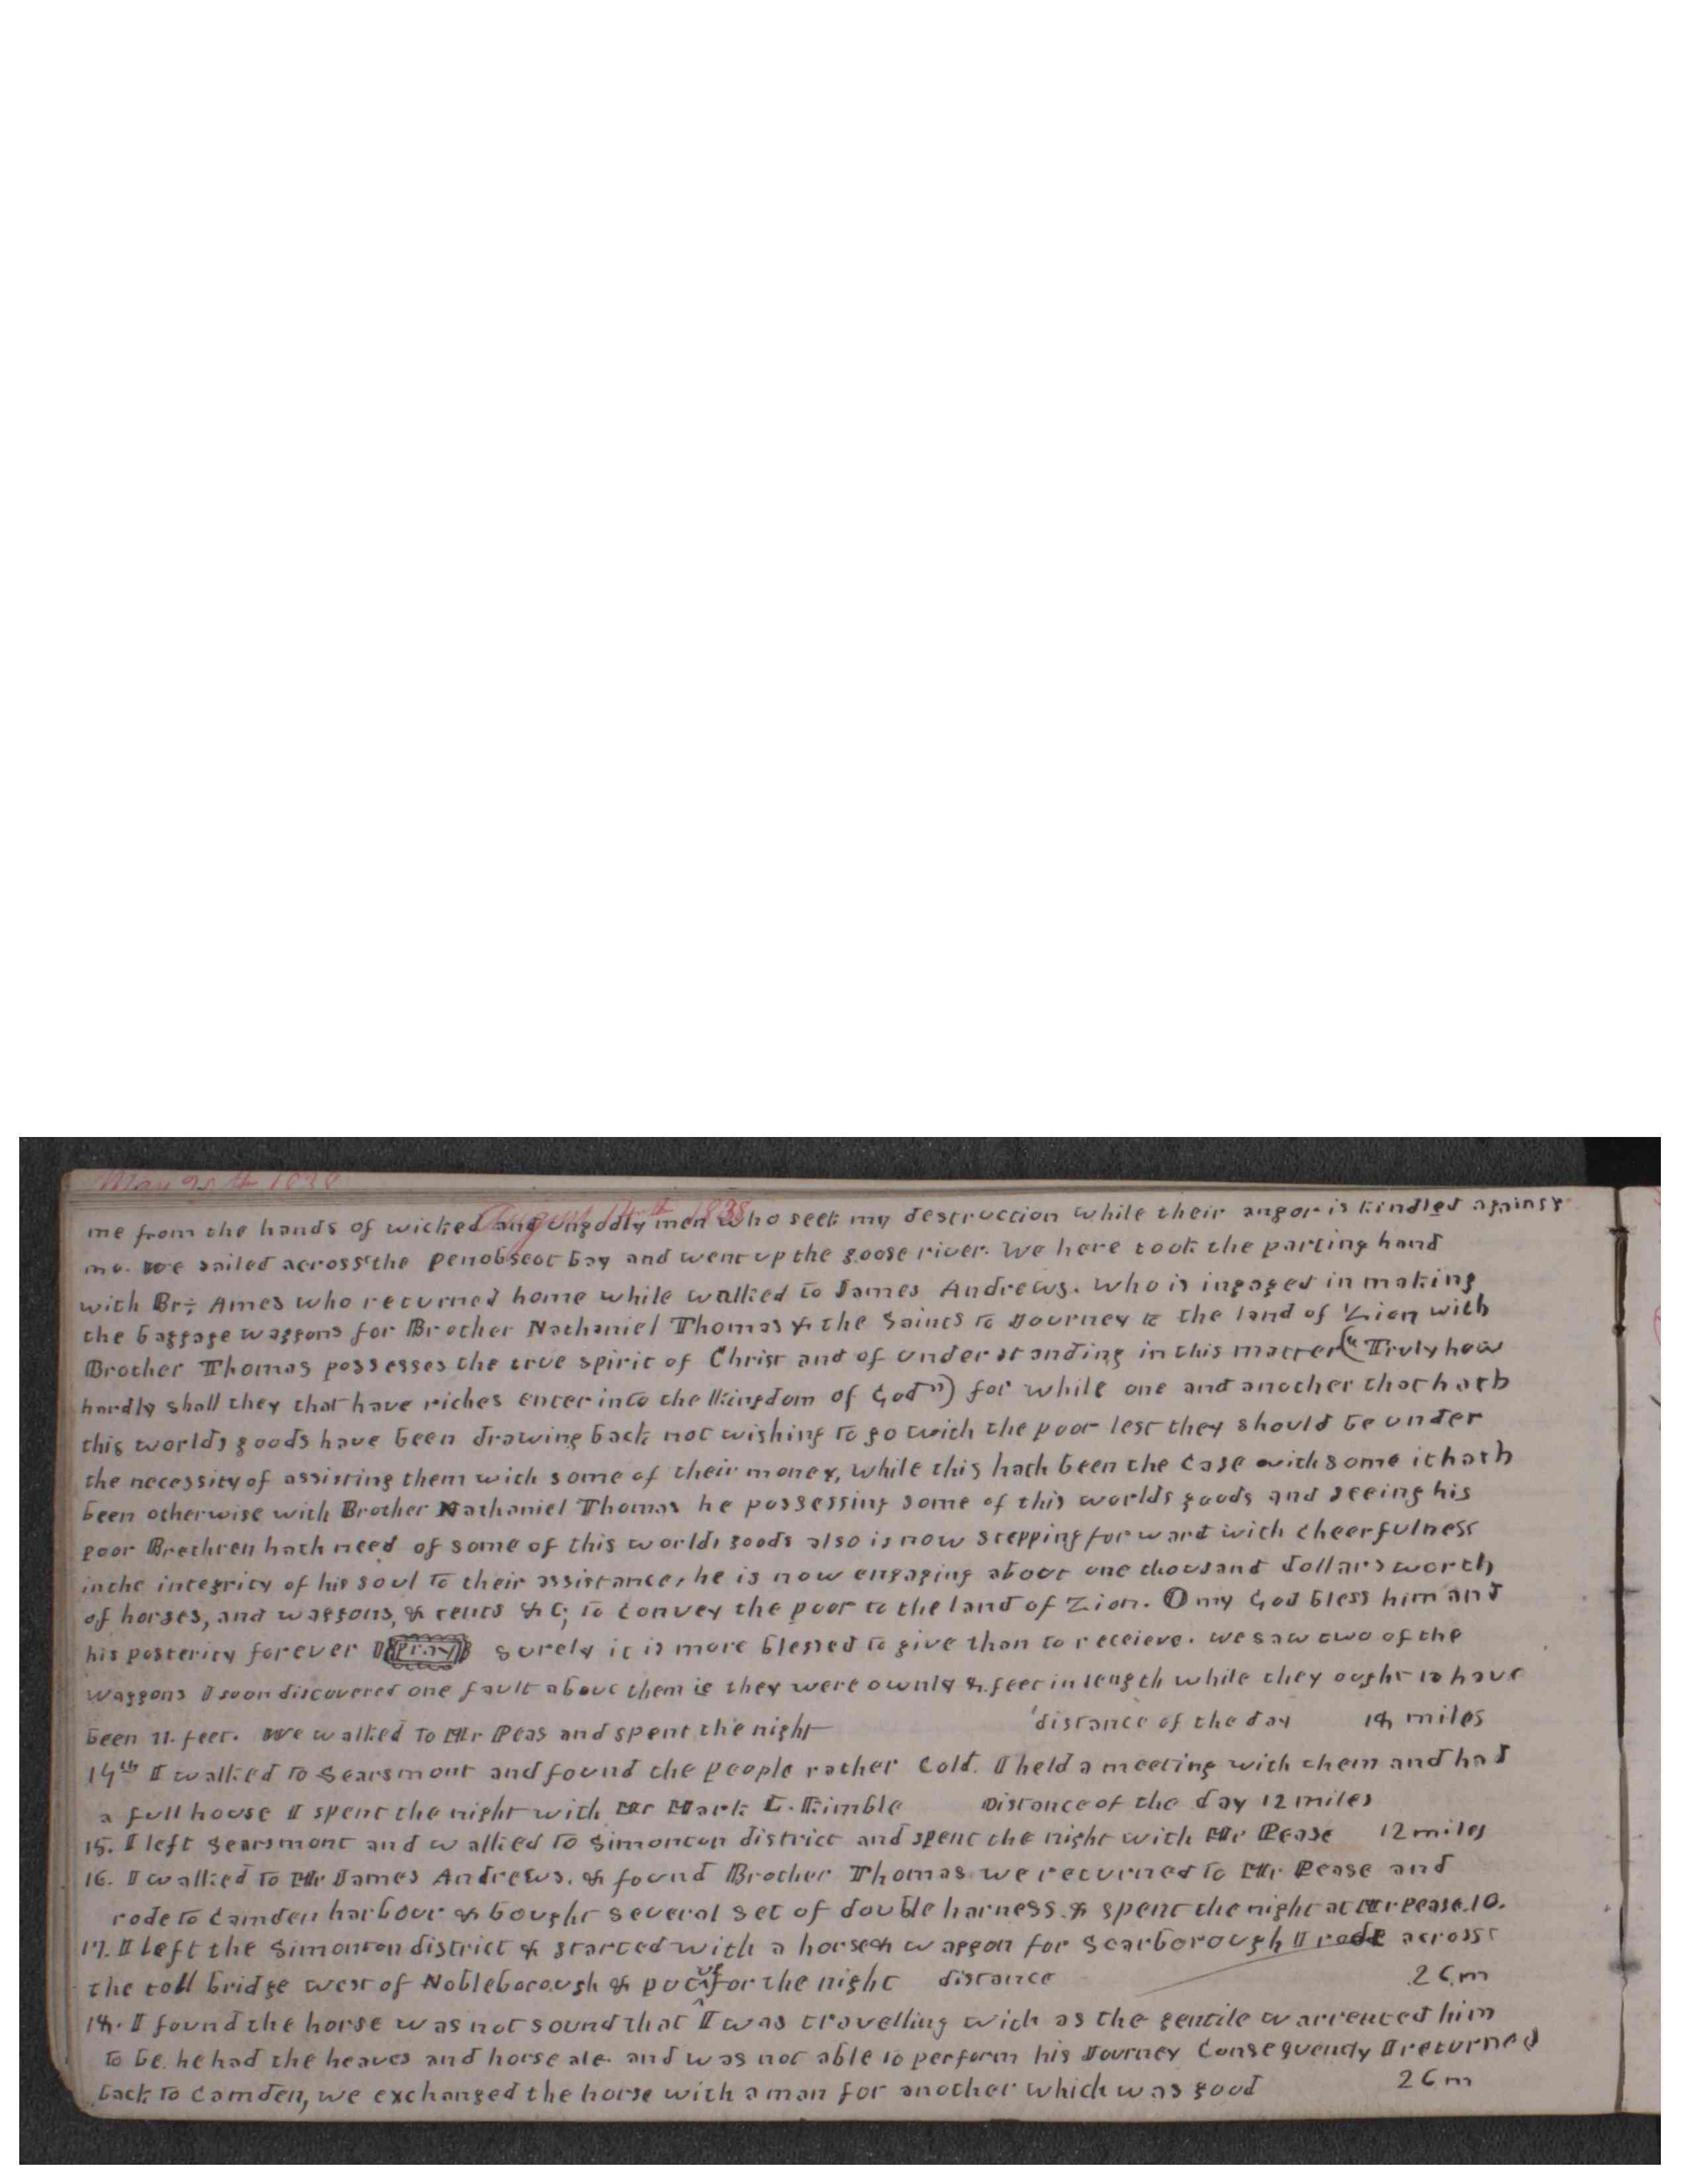 May 25th 1838
August 14th 1838
me from the hands of wicked and ungodly men who seek my destruction while their angor is kindled against
me. We sailed across the penobscot bay and went up the goose river. We here took the parting hand
with Br; Ames who returned home while walked to James Andrews. who is ingaged in making
the baggage waggons for Brother Nathaniel Thomas & the Saints to Journey to the land of Zion with
Brother Thomas possesses the true spirit of Christ and of understanding in this matter ("Truly how
hardly shall they that have riches enter into the Kingdom of God") for while one and another that hath
this worlds goods have been drawing back not wishing to go with the poor lest they should be under
the necessity of assisting them with some of their money, while this hath been the case with some it hath
been otherwise with Brother Nathaniel Thomas he possessing some of this worlds goods and seeing his
poor Brethren hath need of some of this worlds goods also is now stepping forward with cheerfulness
in the integrity of his soul to their assistance, he is now engaging about one thousand dollars worth
of horses, and waggons, & tents &C; to convey the poor to the land of Zion. O my God bless him and
his posterity forever I pray surely it is more blessed to give than to receieve. we saw two of the
waggons I soon discovered one fault about them ie they were ownly 8. feet in length while they ought to have
been 11. feet. We walked to Mr Peas and spent the night distance of the day 18 miles
14th I walked to Searsmont and found the people rather Cold. I held a meeting with them and had
a full house I spent the night with Mr Mark L. Kimble Distance of the day 12 miles
15. I left Searsmont and walked to Simonton district and spent the night with Mr Pease 12 miles
16. I walked to Mr James Andrews. & found Brother Thomas we returned to Mr Pease and
rode to Camden harbour & bought several set of double harness. & spent the night at Mr Pease. 10.
17. I left the Simonton district & started with a horse & waggon for Scarborough I rode across
the toll bridge west of Nobleborough & put up for the night distance 26 m
18. I found the horse was not sound that I was travelling with as the gentile warrented him
to be. he had the heaves and horse ale. and was not able to perform his Journey Consequently I returned
back to Camden, we exchanged the horse with a man for another which was good 26 m